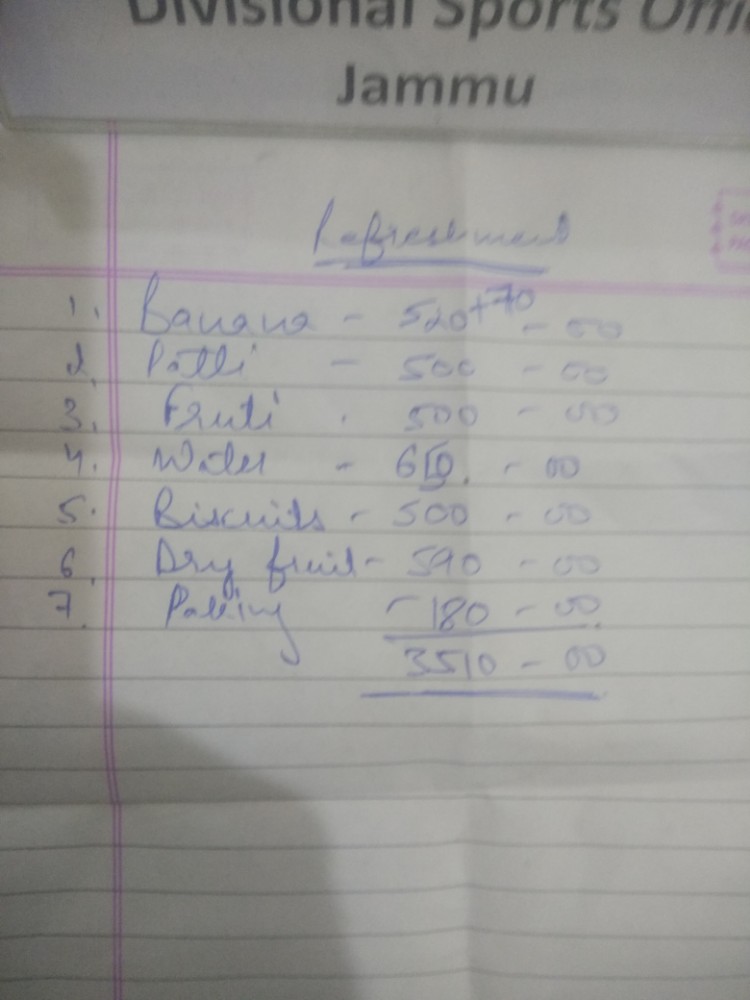 Divisional Sports Offi
Jammu
Refreshment
1. Banana - 520+70 - 00
2. Patti - 500 - 00
3. Fruti . 500 - 00
4. Water - 610. - 00
5. Biscuits - 500 - 00
6. Dry fruit - 590 - 00
7. Paking - 180 - 00
3510 - 00